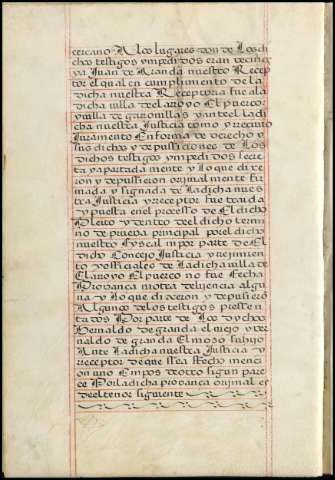 cercano A los lugares don de Los di
chos testigos ympedidos eran vecinos
ya Juan de Aranda nuestro Recep
tor el qual en cumplimiento de la
dicha nuestra Receptoria fue a la
dicha uilla del arroyo El puerco y
uilla de garouillas y ante la di
cha nuestra Justicia tomo y rrecivio
Juramento En forma de derecho y
sus dichos y depusiciones de Los
dichos testigos ympedidos secre
ta y apartada mente y Lo que dixe
ron y depusieron orijinal mente fir
mada y signada de La dicha nues
tra Justicia y rreceptor fue trayda
y puesta en el processo de El dicho
Pleito y dentro del dicho termi
no de prueva principal por el dicho
nuestro fyscal ni por parte de El
dicho Concejo Justicia y rrejimiento
y officiales de La dicha uilla de
El arroyo El puerco no fue Fecha
Provança ni otra delijencia algu
na y Lo que dixeron y depusieron
Algunos de los testigos presen
tados Por parte de Los dichos
Bernaldo de granda el uiejo y ber
naldo de granda El moço su hijo
Ante La dicha nuestra Justicia y
rreceptor de que esta fecho menci
on uno Empos de otro sigun pare
ce Por la dicha provança orijinal es
del tenor siguiente